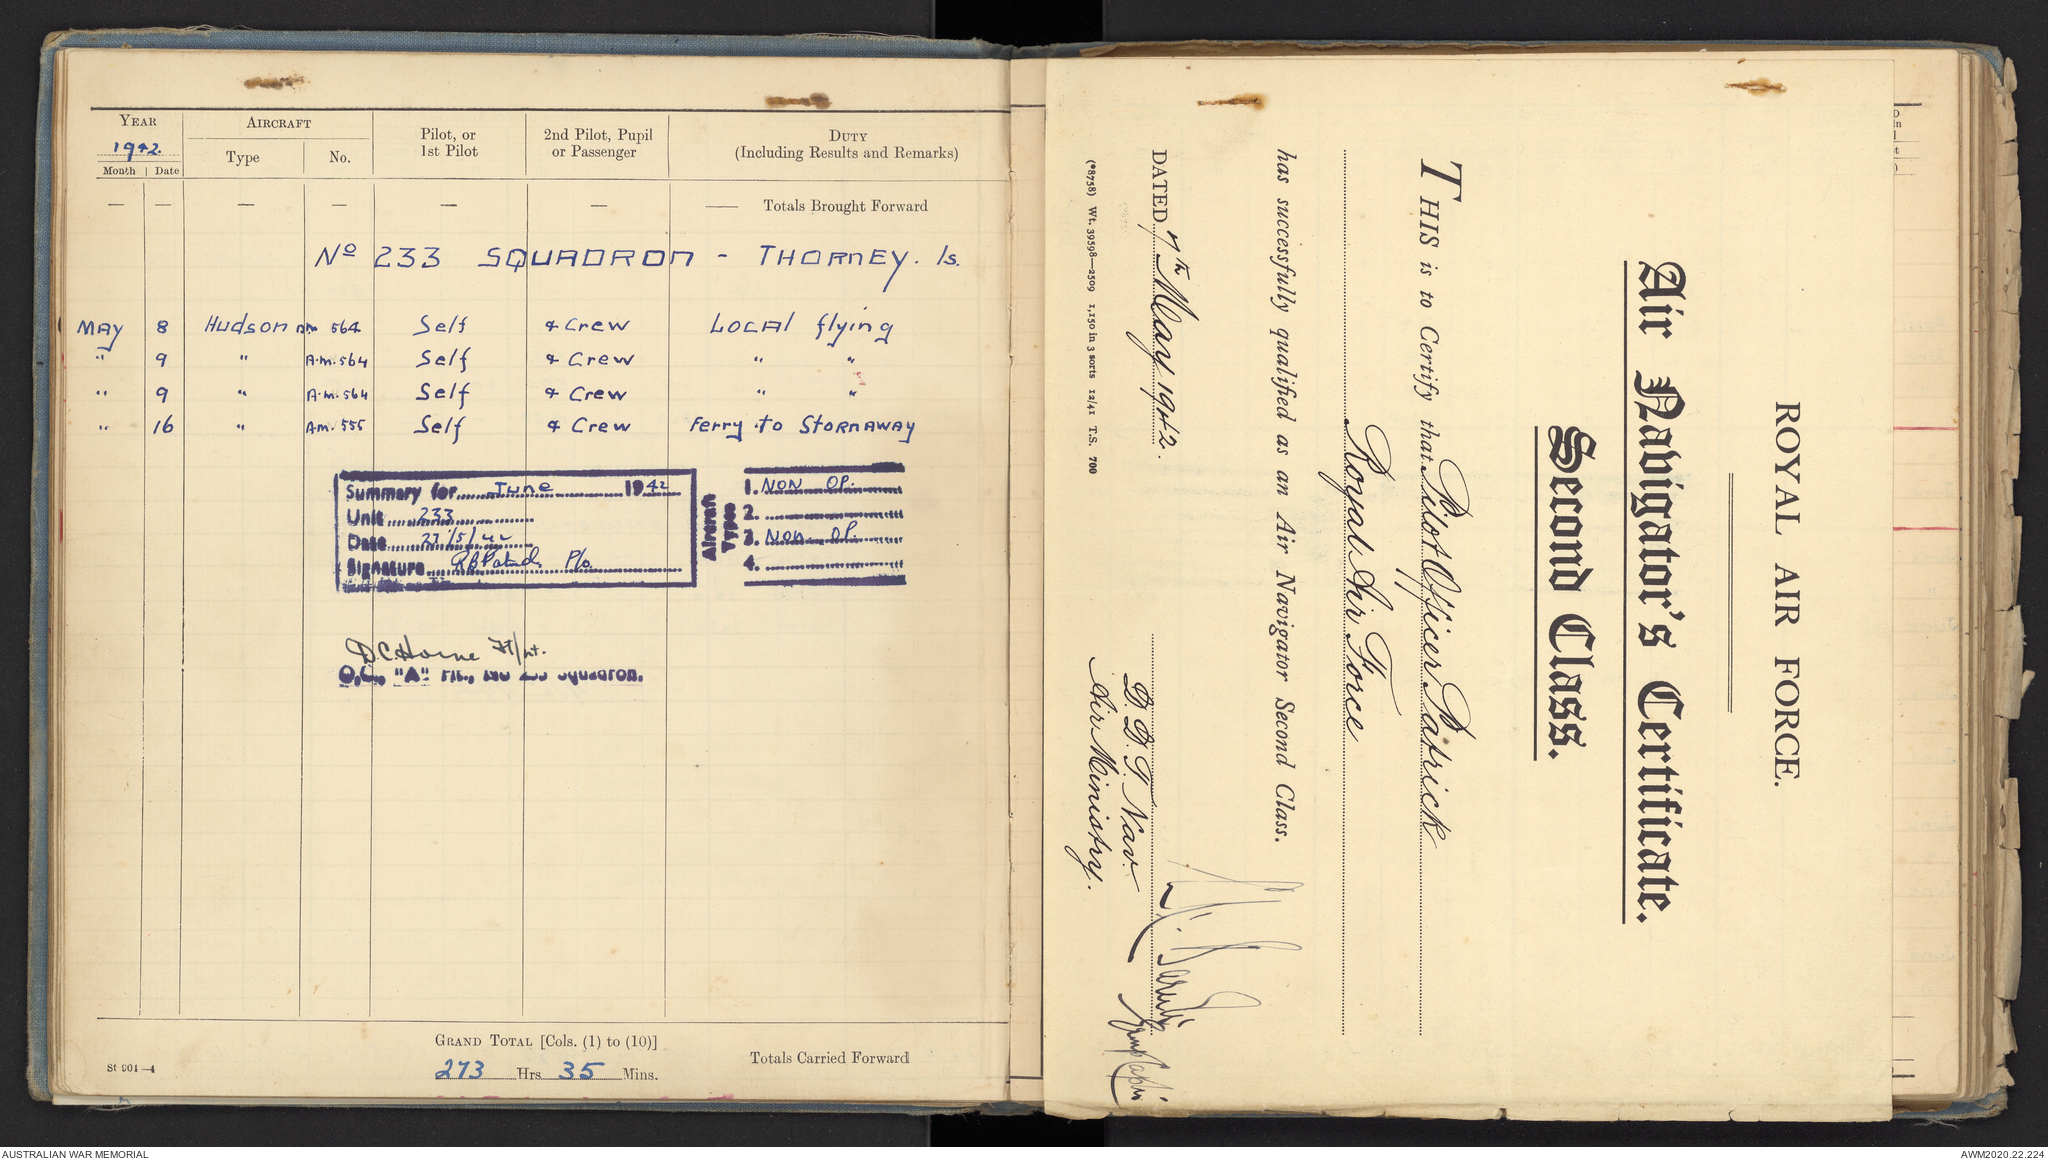 YEAR AIRCRAFT Pilot, or 2nd Pilot, Pupil DUTY
1942. Type No. 1st Pilot or Passenger (Including Results and Remarks)
Month Date
— — — — — — —— Totals Brought Forward
No 233 SQUADRON - THORNEY. Is.
MAY 8 Hudson AM 564 Self & Crew LOCAL flying
" 9 " A.M.564 Self & Crew " "
" 9 " A.M.564 Self & Crew " "
" 16 " AM. 555 Self & Crew Ferry to STORNAWAY
Summary for June 1942
Unit 233
Date 27/5/42
Signature RBPatrick P/o.
Aircraft Types
1. NON OP.
2.
3. NON OP.
4.
D.C.Horne Flt/Lt.
O.C., "A" Flt., No 233 Squadron.
GRAND TOTAL [Cols. (1) to (10)]
273 Hrs 35 Mins.
Totals Carried Forward
St 901—4
ROYAL AIR FORCE.
Air Navigator's Certificate.
Second Class.
THIS is to Certify that Pilot Officer Patrick
Royal Air Force
has successfully qualified as an Air Navigator Second Class.
DATED 7th May 1942.
D. D. T. Nav.
Air Ministry.
Group Capt.
(*8758) Wt. 39598—2509 1,150 in 3 sorts 12/41 T.S. 700
AUSTRALIAN WAR MEMORIAL
AWM2020.22.224